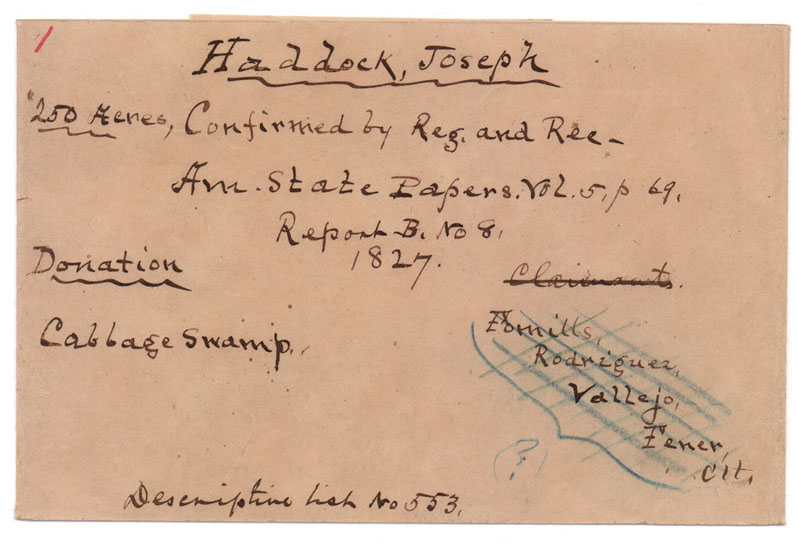 1
Haddock, Joseph
250 Acres, Confirmed by Reg. and Rec-
Am. State Papers. Vol. 5, p 69.
Report B. No 8.
1827.
Donation
Claimants.
Cabbage Swamp.
Fomills,
Rodriguez,
Vallejo,
Fener,
cit.
(?)
Descriptive list No 553.